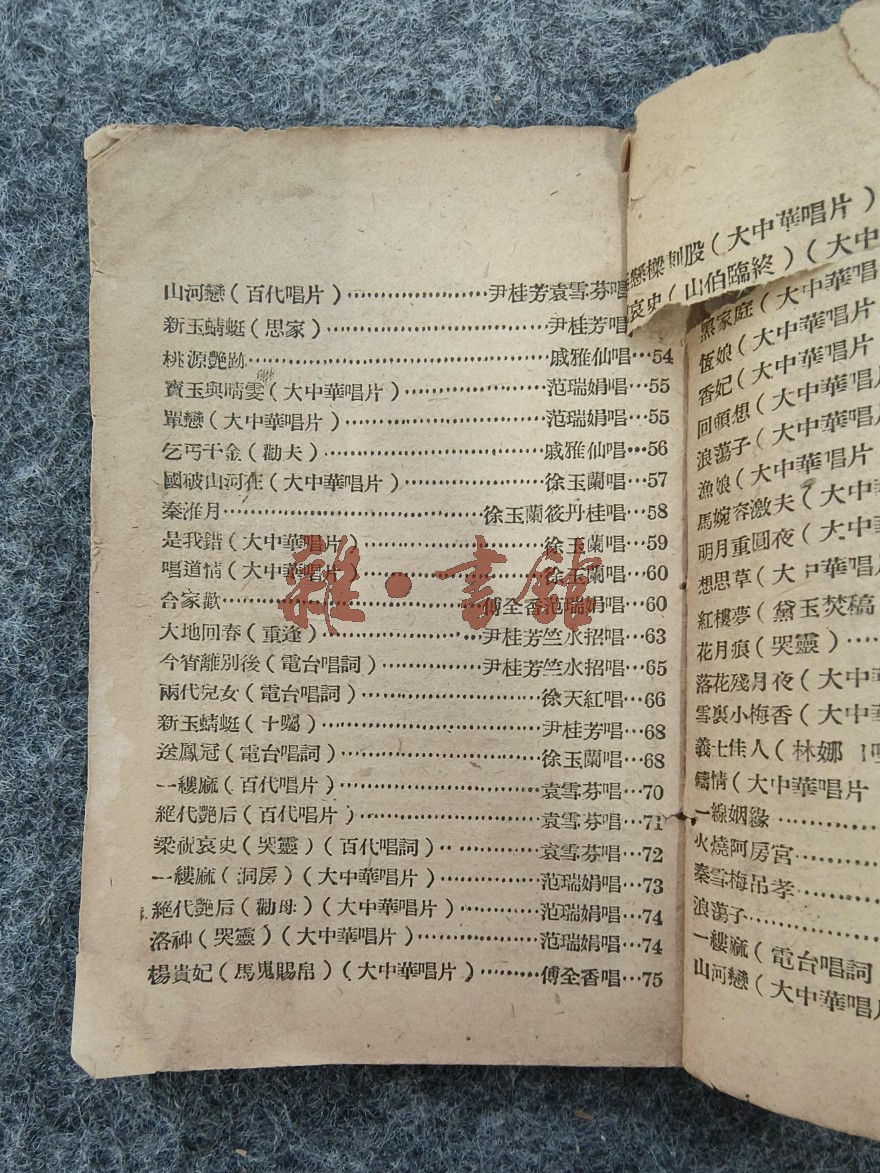 山河戀(百代唱片)⋯⋯尹桂芳袁雪芬唱
新玉蜻蜓(思家)⋯⋯尹桂芳唱
桃源艷跡⋯⋯戚雅仙唱⋯54
寶玉與晴雯(大中華唱片)⋯⋯范瑞娟唱⋯55
單戀(大中華唱片)⋯⋯范瑞娟唱⋯55
乞丐千金(勸夫)⋯⋯戚雅仙唱⋯56
國破山河在(大中華唱片)⋯⋯徐玉蘭唱⋯57
秦淮月⋯⋯徐玉蘭筱丹桂唱⋯58
是我錯(大中華唱片)⋯⋯徐玉蘭唱⋯59
唱道情(大中華唱片)⋯⋯徐玉蘭唱⋯60
合家歡⋯⋯傅全香范瑞娟唱⋯60
大地回春(重逢)⋯⋯尹桂芳竺水招唱⋯63
今宵離別後(電台唱詞)⋯⋯尹桂芳竺水招唱⋯65
兩代兒女(電台唱詞)⋯⋯徐天紅唱⋯66
新玉蜻蜓(十囑)⋯⋯尹桂芳唱⋯68
送鳳冠(電台唱詞)⋯⋯徐玉蘭唱⋯68
一縷麻(百代唱片)⋯⋯袁雪芬唱⋯70
絕代艷后(百代唱片)⋯⋯袁雪芬唱⋯71
梁祝哀史(哭靈)(百代唱詞)⋯⋯袁雪芬唱⋯72
一縷麻(洞房)(大中華唱片)⋯⋯范瑞娟唱⋯73
絕代艷后(勸母)(大中華唱片)⋯⋯范瑞娟唱⋯74
洛神(哭靈)(大中華唱片)⋯⋯范瑞娟唱⋯74
楊貴妃(馬嵬賜帛)(大中華唱片)⋯⋯傅全香唱⋯75
雜·書館
懸樑刺股(大中華唱片)
哀史(山伯臨終)(大中
黑家庭(大中華唱
恆娘(大中華唱片
香妃(大中華唱片
回頭想(大中華唱片
浪蕩子(大中華唱
漁娘(大中華唱片
馬婉容激夫(大中
明月重圓夜(大中
想思草(大中華唱片
紅樓夢(黛玉焚稿
花月痕(哭靈)⋯
落花殘月夜(大中
雪裏小梅香(大中
義士佳人(林娜
鑄情(大中華唱片
一線姻緣⋯⋯
火燒阿房宮⋯⋯
秦雪梅吊孝⋯⋯
浪蕩子⋯⋯
一縷麻(電台唱詞
山河戀(大中華唱片